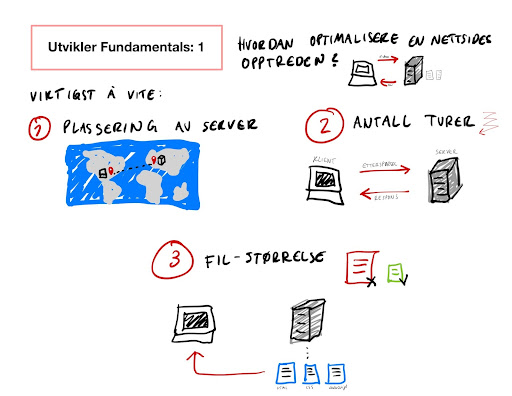 Utvikler Fundamentals: 1
HVORDAN OPTIMALISERE EN NETTSIDES
OPPTREDEN?
VIKTIGST Å VITE:
1 PLASSERING AV SERVER
2 ANTALL TURER
KLIENT
ETTERSPØRSEL
SERVER
RESPONS
3 FIL-STØRRELSE